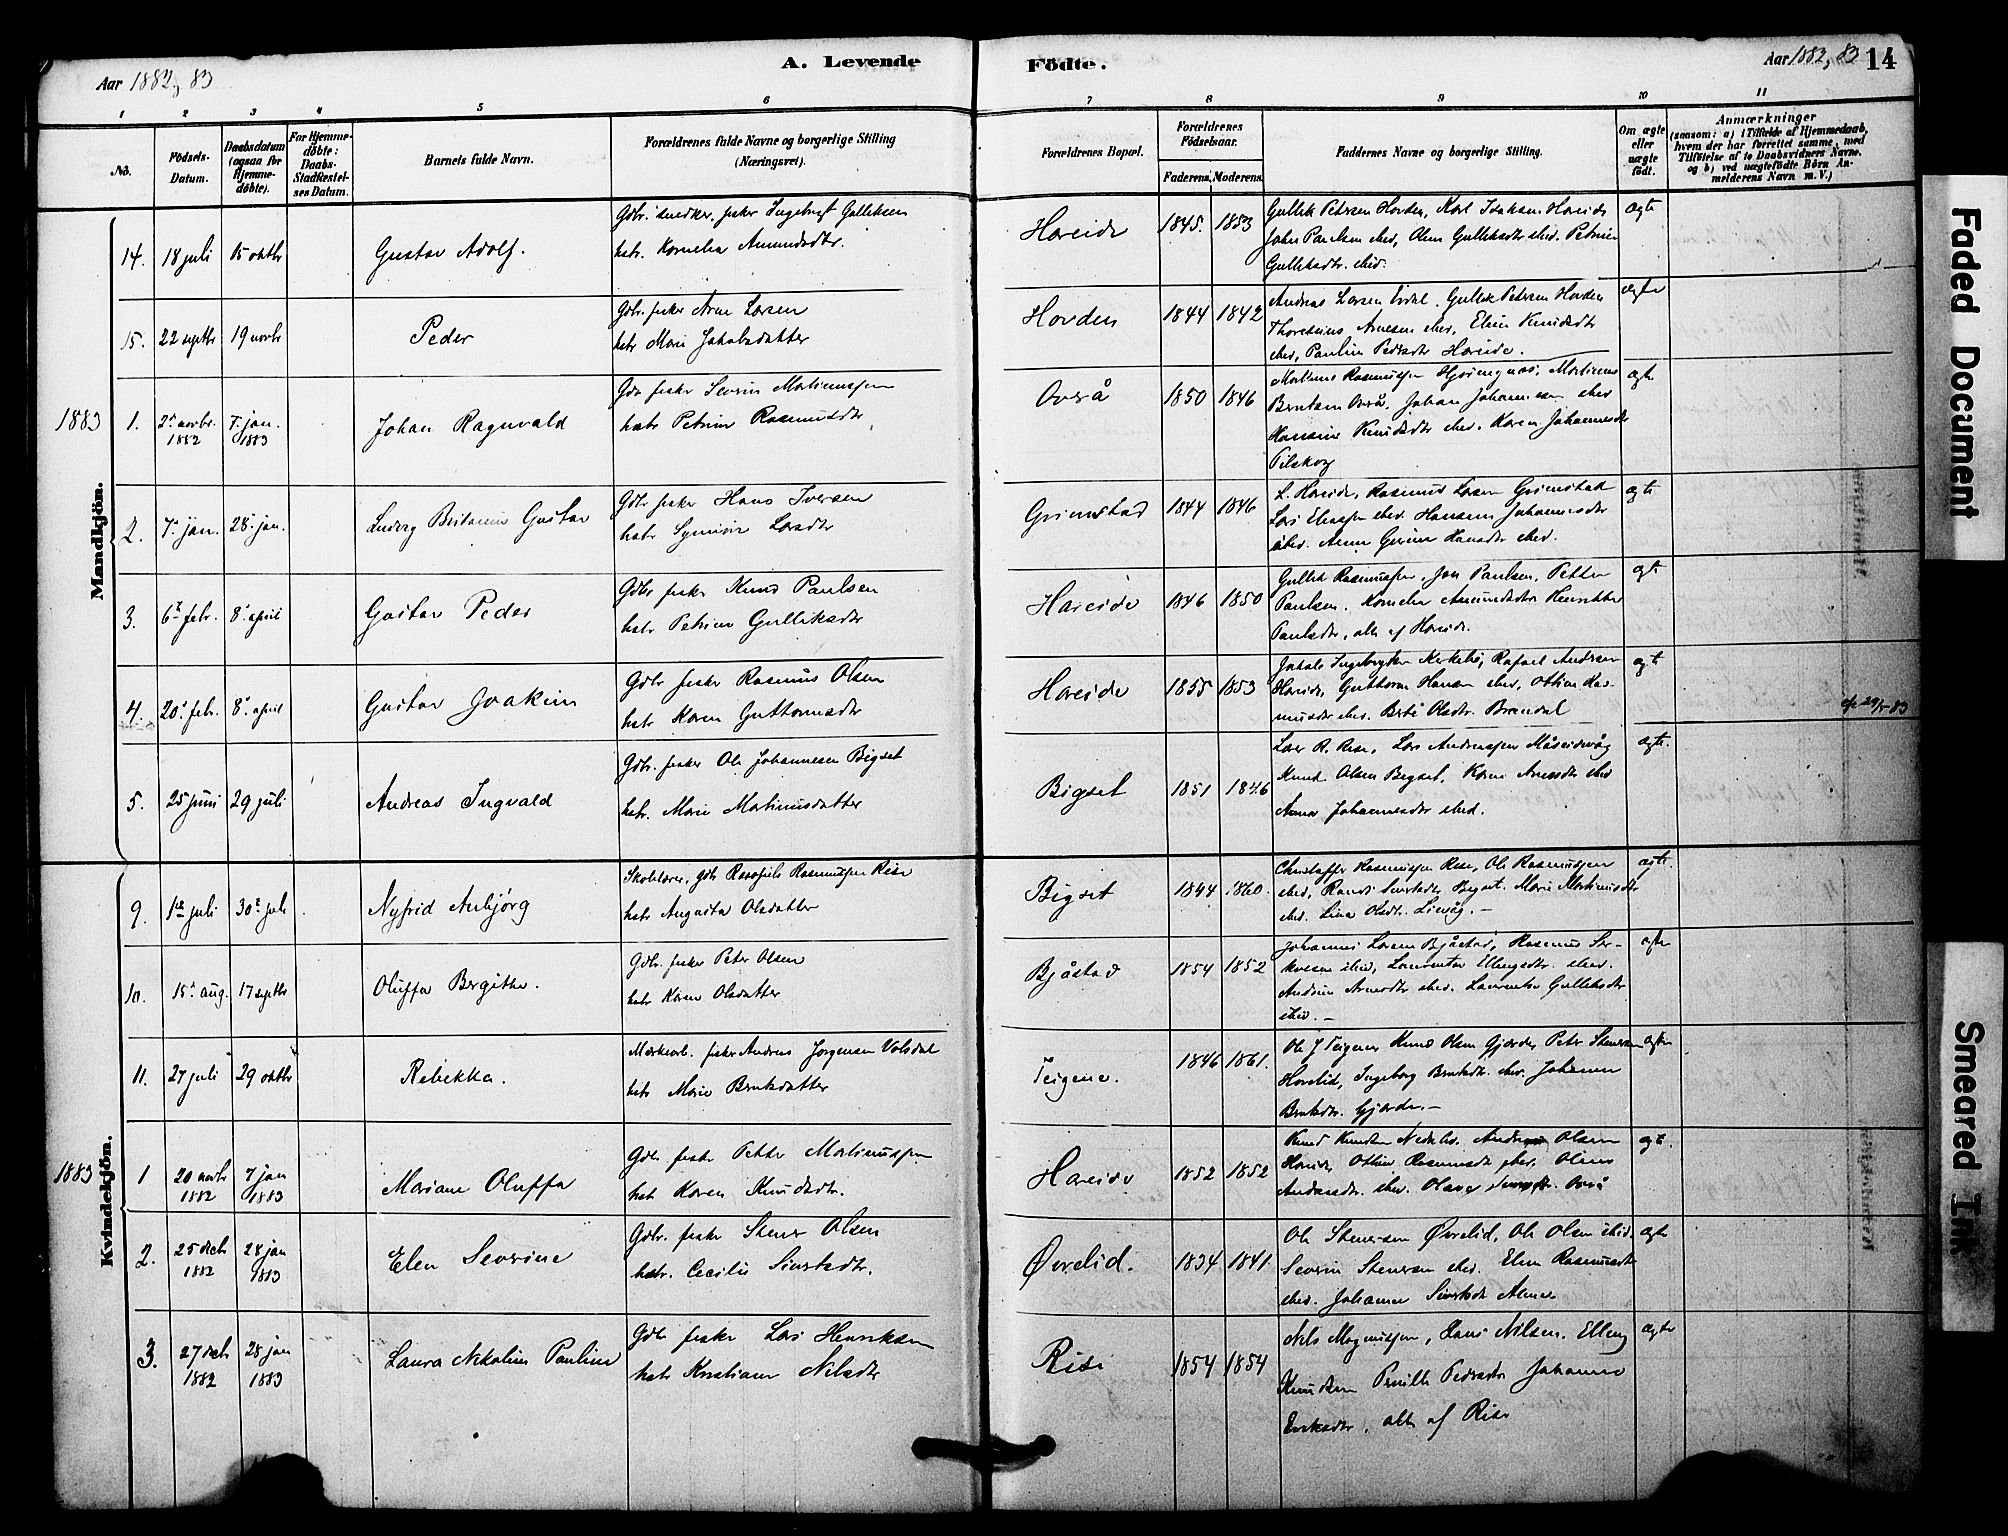 Aar 1882, 83
A. Levende
Födte.
Aar 1882, 83
14
1 2 3 4 5 6 7 8 9 10 11
No.
Födsels-Datum.
Daabsdatum (ogsaa for Hjemme-döbte).
For Hjemme-döbte: Daabs-Stadfæstel-ses Datum.
Barnets fulde Navn.
Forældrenes fulde Navne og borgerlige Stilling (Næringsvei).
Forældrenes Bopæl.
Forældrenes Födselsaar.
Faderens. Moderens.
Faddernes Navne og borgerlige Stilling.
Om ægte eller uægte født.
Anmærkninger
(saasom: a) i Tilfælde af Hjemmedaab,
hvem der har forrettet samme, med
Tilföielse af to Daabsvidners Navne,
og b) ved uægtefödte Börn An-
melderens Navn m. V.)
Mandkjön.
14. 18 juli 15 oktbr Gustav Adolf.
Gbr. snedker. fisker Ingebrigt Gulliksen
hstr. Kornelia Amundsdtr.
Hareide 1845. 1853
Gullik Petersen Hovden, Karl Isaksen Hareide
John Paulsen ibid, Oline Gulliksdtr ibid. Petrine
Gulliksdtr. ibid.
ægte
15. 22 septbr 19 novbr Peder
Gbr. fisker Arne Larsen
hstr Marie Jakobsdatter
Hovden 1844 1842
Andreas Larsen Gullik Petersen Hovden
Thoresius Arnesen ibid, Eline Knudsdtr
ibid, Pauline Pedersdtr Hareide.
ægte
1883
1. 2 novbr. 1882 7. jan. 1883 Johan Ragnvald
Gbr fisker Severin Martinussen
hstr Petrine Rasmusdtr
Overå 1850 1846
Martinus Rasmussen Hjørungnæs, Martinus
Berntsen Overå, Johan Johannesen ibid
Hansine Knudsdtr ibid. Karen Johannesdtr
Pilskog
ægte
2. 7. jan. 28. jan. Ludvig Gustav
Gbr fisker Hans Iversen
hstr Synnøve Larsdtr
Grimstad 1844 1846
L. Hareide, Rasmus Larsen Grimstad
Lars Eliassen ibid. Hansine Johannesdtr
ibid. Anne Gurine Hansdtr ibid.
ægte
3. 6 febr. 8. april Gustav Peder
Gbr fisker Knud Paulsen
hstr Petrine Gulliksdtr
Hareide 1846 1850
Gullik Rasmussen, Jon Paulsen, Petter
Paulsen, Kornelia Amundsdtr Henrikke
Paulsdtr, alle af Hareide.
ægte
4. 20. febr. 8. april Gustav Joakim
Gbr fisker Rasmus Olsen
hstr Karen Guttormsdtr
Hareide 1855 1853
Jakob Ingebrigtsen Kirkebø, Rafael Andersen
Hareide, Guttorm Hansen ibid, Ottine Ras-
musdtr ibid. Berte Olsdtr. Brandal
ægte
5. 25 juni 29 juli Andreas Ingvald
Gbr. fisker Ole Johannesen Bigset
hstr. Marie Martinusdatter
Bigset 1851 1846
Lars R. Rise, Lars Andreassen Måseidvåg
Knud Olsen Bigset, Karen Arnesdtr ibid
Anna Johannesdtr ibid.
ægte.
Kvindekjön.
9. 1ste juli 30 juli Nyfrid Anbjørg
Skolelærer, gbr Rasmussen Rise
hstr Augusta Olsdatter
Bigset 1844 1860.
Christoffer Rasmussen Rise, Ole Rasmussen
ibid, Randi Sivertsdtr Bigset. Marie Martinusdtr
ibid. Lina Olsdtr. Liavåg. —
ægte.
10. 15. aug. 17 septbr Oluffa Bergithe.
Gbr. fisker Peter Olsen
hstr Karen Olsdatter
Bjåstad 1854 1852
Johannes Larsen Bjåstad, Rasmus
ibid, Laurentse Ellingsdtr. ibid.
Andrine Arnesdtr ibid. Laurentse Gulliksdtr
ibid. —
ægte
11. 27 juli 29 oktbr Rebekka.
fisker Andreas Jørgensen Volsdal
hstr Marie Berntsdatter
Teigene. 1846 1861.
Ole J Teigene, Knud Olsen Gjerde, Peter Stenersen
Hovlid, Ingeborg Berntsdtr. ibid. Johanne
Berntsdtr. Gjerde. —
ægte
1883
1 20 novbr 1882 7 jan 1883 Mariane Oluffa
Gbr fisker Petter Martinussen
hstr Karen Knudsdtr.
Hareide 1852 1852
Knud Knudsen Nedrelid. Andreas Olsen
Hareide, Ottine Rasmusdtr ibid. Oline
Andersdtr. ibid. Overå
ægte.
2. 25 decbr 1882 28 jan 1883 Elen Severine
Gbr. fisker Stener Olsen
hstr. Cecilie Sivertsdtr.
Øvrelid. 1834 1841.
Ole Stenersen Øvrelid, Ole Olsen ibid.
Severin Stenersen ibid. Eline Rasmusdtr
ibid. Johanne Sivertsdtr
ægte
3. 27 decbr 1882 28 jan 1883 Laura Nikoline Pauline
Gbr fisker Lars Henriksen
hstr Kristiane Nilsdtr
Rise 1854 1854
Nils Magnussen, Hans Nilsen, Elling
Knudsen Pernille Pedersdtr Johanne
Eriksdtr, alle af Rise
ægte
Faded Document
Smeared Ink